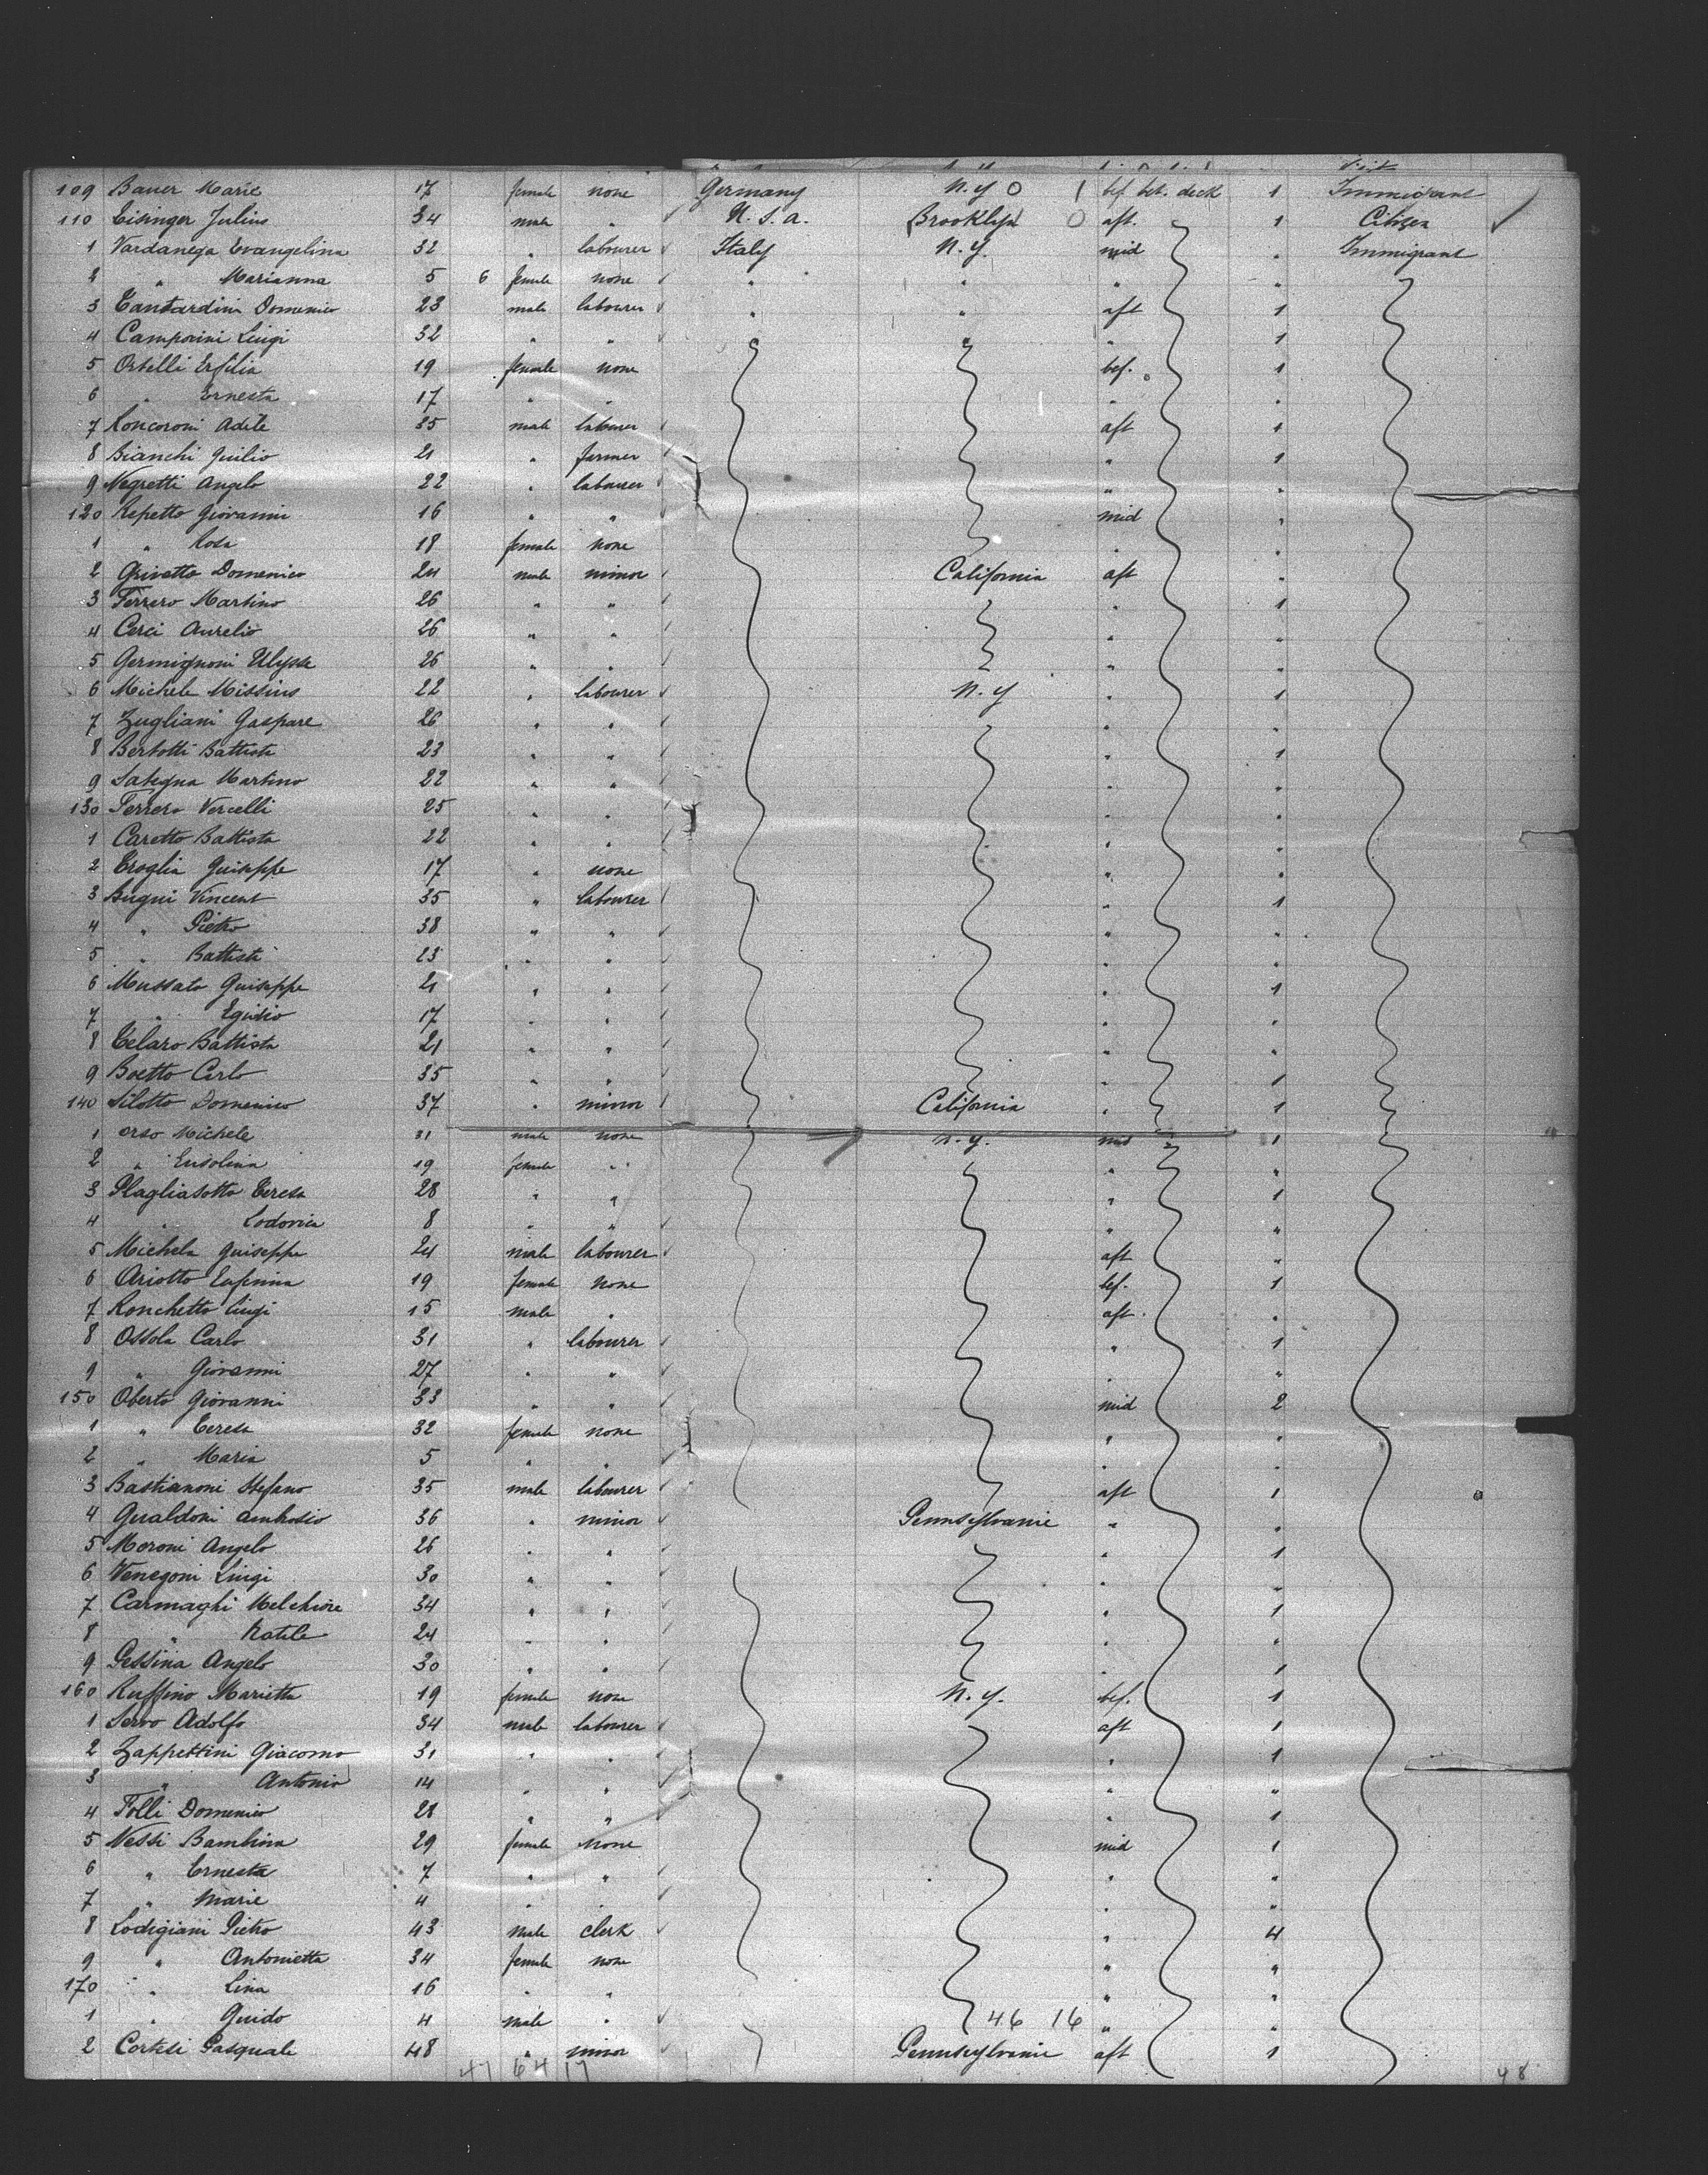 109 Bauer Marie 17 female none Germany N.Y 0 1 bef. bet. deck 1 Immigrant
110 Eisinger Julius 34 male " U.S.a. Brooklyn 0 aft. 1 Citizen
1 Vardanega Evangelina 32 " labourer Italy N.Y. mid " Immigrant
2 " Marianna 5 6 female none " " " "
3 Cantardini Domenico 23 male labourer " " aft 1
4 Camporini Luigi 32 " " " " 1
5 Ortelli Ersilia 19 female none bef. 1
6 " Ernesta 17 " " " "
7 Roncoroni Adele 35 male labourer aft 1
8 Bianchi Giulio 21 " farmer " 1
9 Negretti Angelo 22 " labourer " "
120 Repetto Giovanni 16 " " mid "
1 " Rosa 18 female none " "
2 Grivatto Domenico 24 male minor California aft "
3 Ferrero Martino 26 " " " 1
4 Cerci Aurelio 26 " " " "
5 Germignoni Ulysse 26 " " " "
6 Michele Missino 22 " labourer N.Y " 1
7 Zugliani Gaspare 26 " " " "
8 Bertotti Battista 23 " " " 1
9 Sategna Martino 22 " " " "
130 Ferrero Vercelli 25 " " " "
1 Caretto Battista 22 " " " "
2 Croglia Guiseppe 17 " none " "
3 Bugni Vincent 35 " labourer " 1
4 " Pietro 38 " " " "
5 " Battista 23 " " " "
6 Mussato Guiseppe 21 " " " 1
7 " Egidio 17 " " " "
8 Celaro Battista 21 " " " "
9 Boetto Carlo 35 " " " 1
140 Silotto Domenico 37 " minor California " 1
1 Orso Michele 31 male none N.Y. mid 1
2 " Ersolina 19 female " " "
3 Plagliasotto Teresa 28 " " " 1
4 " Lodovica 8 " " " "
5 Michela Guiseppe 24 male labourer aft "
6 Ariotto Eufemia 19 female none bef. 1
7 Ronchetto Luigi 15 male " aft. "
8 Ossola Carlo 31 " labourer " 1
9 " Giovanni 27 " " " "
150 Oberto Giovanni 33 " " mid 2
1 " Teresa 32 female none " "
2 " Maria 5 " " " "
3 Bastianoni Stefano 35 male labourer aft 1
4 Gualdoni Ambrosio 36 " minor Pennsylvanie " "
5 Moroni Angelo 26 " " " 1
6 Venegoni Luigi 30 " " " "
7 Carmaghi Melchiore 34 " " " 1
8 " Natale 24 " " " "
9 Gessina Angelo 30 " " " 1
160 Ruffino Marietta 19 female none N.Y. bef. 1
1 Servo Adolfo 34 male labourer aft 1
2 Zappettini Giacomo 31 " " " 1
3 " Antonio 14 " " " "
4 Folli Domenico 28 " " " 1
5 Nessi Bambina 29 female none mid 1
6 " Ernesta 7 " " " "
7 " Marie 4 " " " "
8 Lodigiani Pietro 43 male clerk " 4
9 " Antonietta 34 female none " "
170 " Lina 16 " " " "
1 " Guido 4 male " 46 16 " "
2 Cortesi Pasquale 48 " minor Pennsylvanie aft 1
47 64 17 48